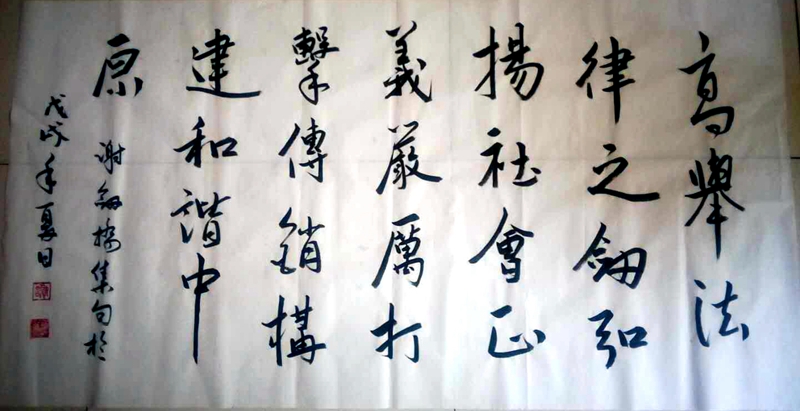 高舉法
律之劍弘
揚社會正
義嚴厲打
擊傳銷構
建和諧中
原
謝劍橋集句於
戊戌年夏日